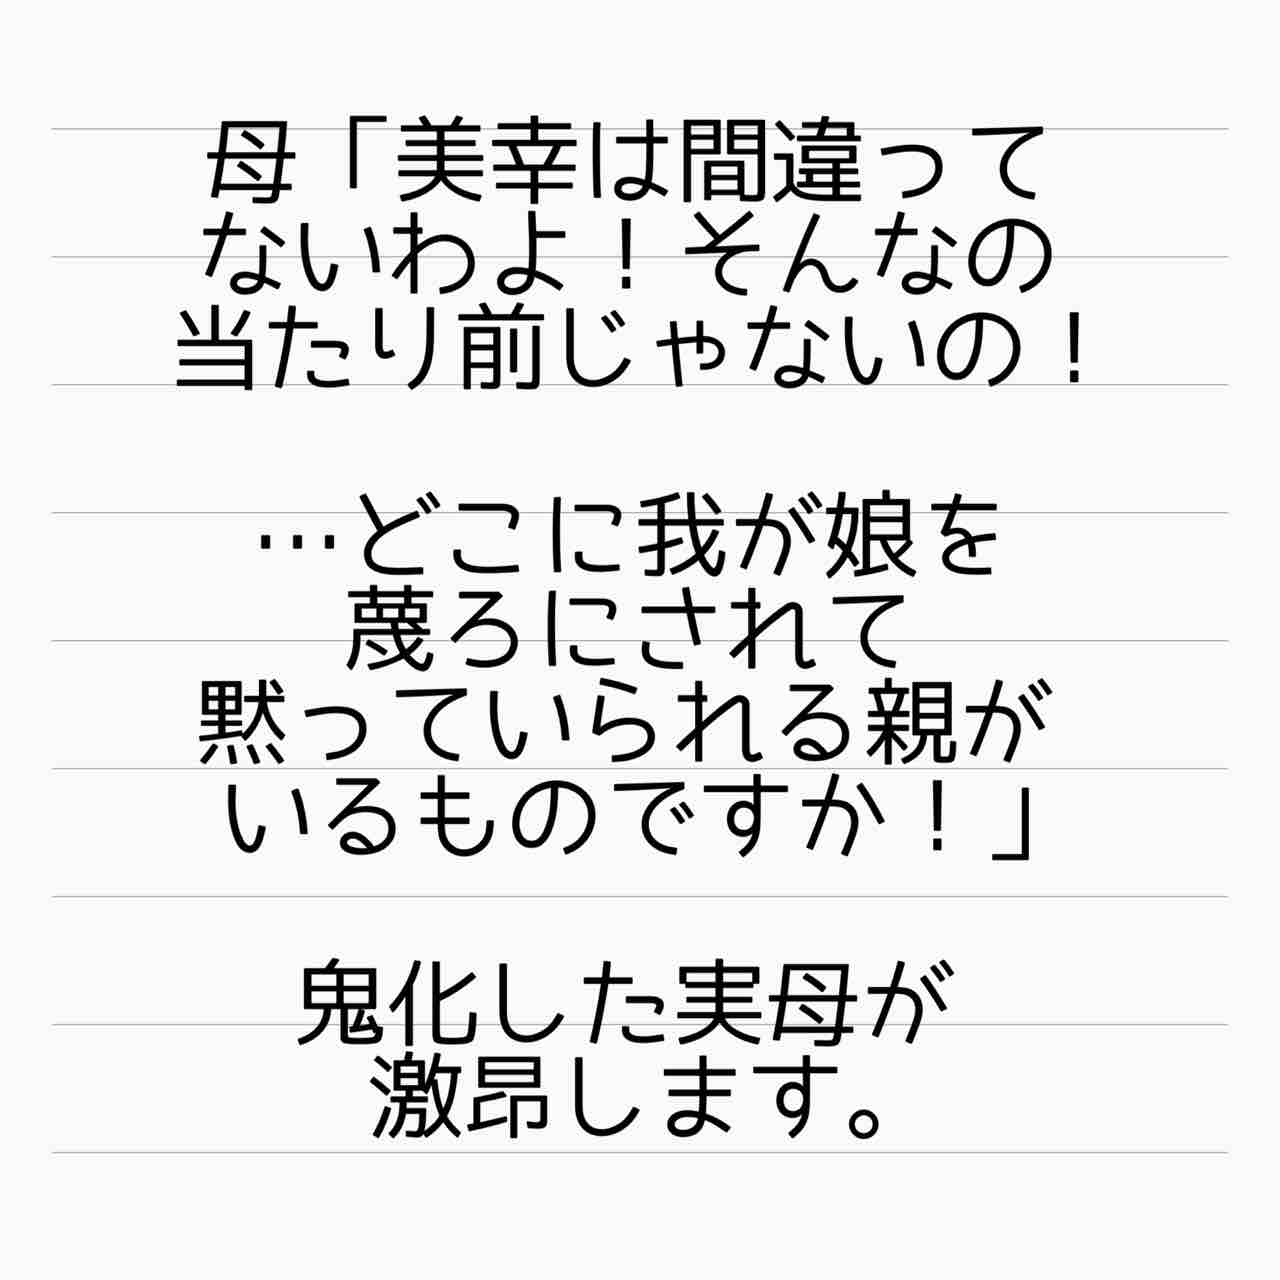 母「美幸は間違って
ないわよ！そんなの
当たり前じゃないの！
…どこに我が娘を
蔑ろにされて
黙っていられる親が
いるものですか！」
鬼化した実母が
激昂します。